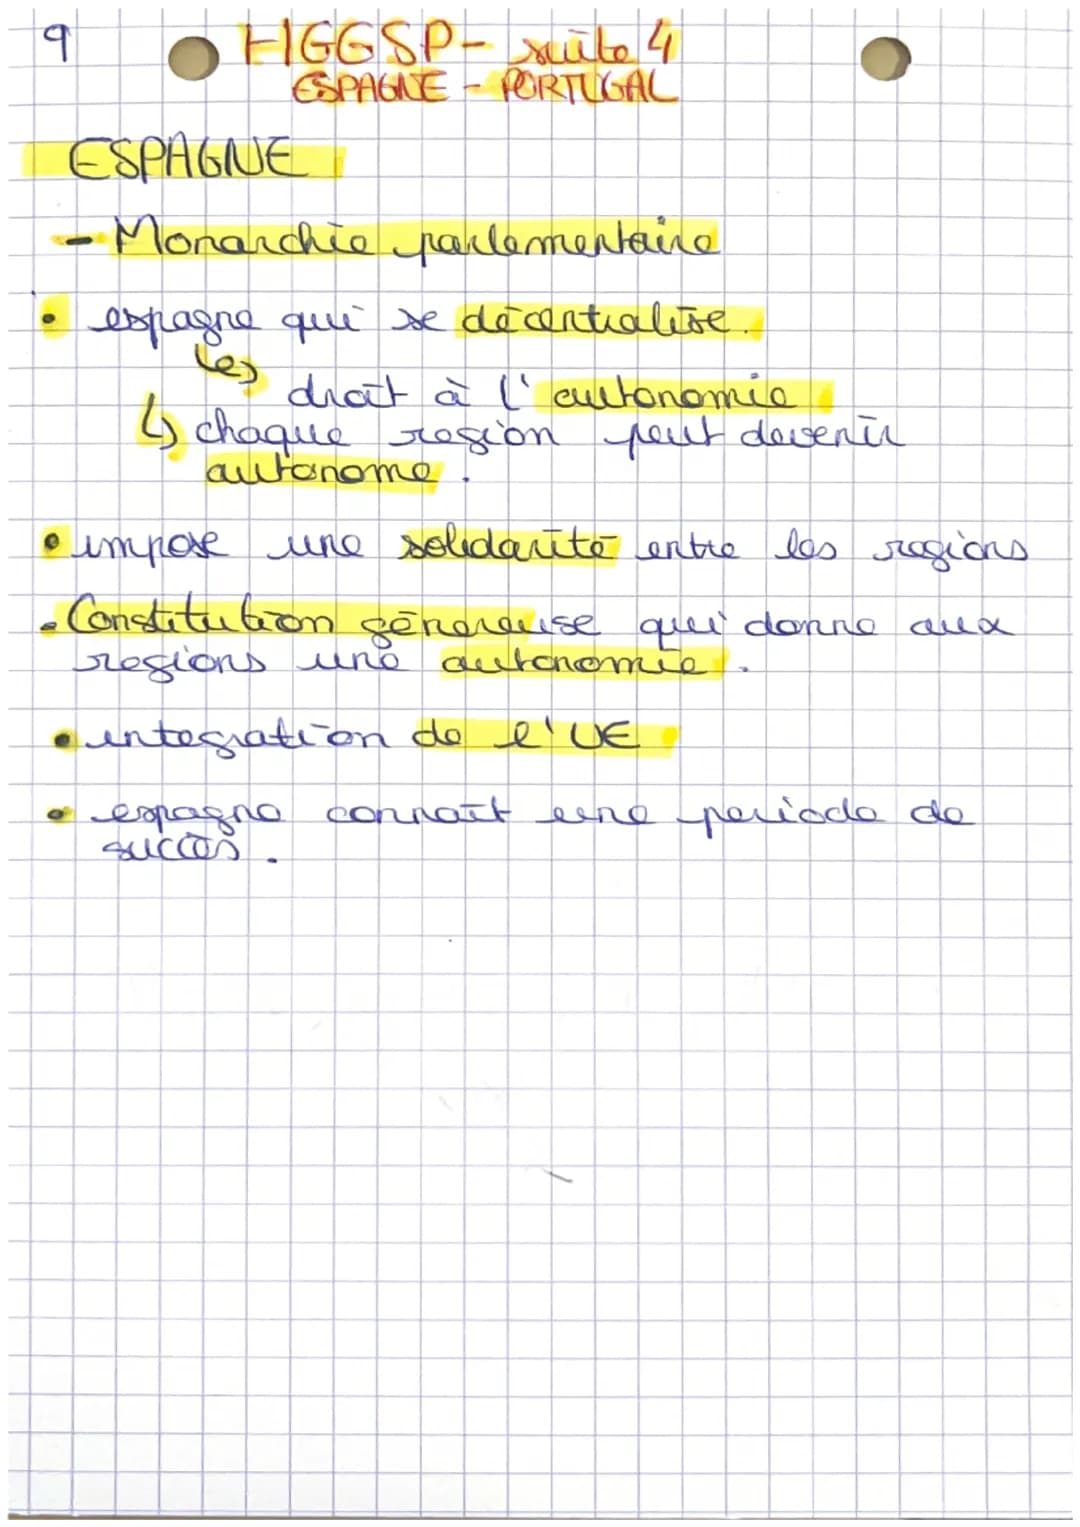 9
HGGSP - suite 4
ESPAGNE - PORTUGAL
ESPAGNE
- Monarchie parlementaire
• espagne qui se décentralise.
↳ droit à l'autonomie
↳ chaque region peut devenir
autonome.
• impose une solidarité entre les regions
- Constitution génereuse qui donne aux
regions une autonomie.
• integration de l'UE
• espagne connaît une periode de
succès.